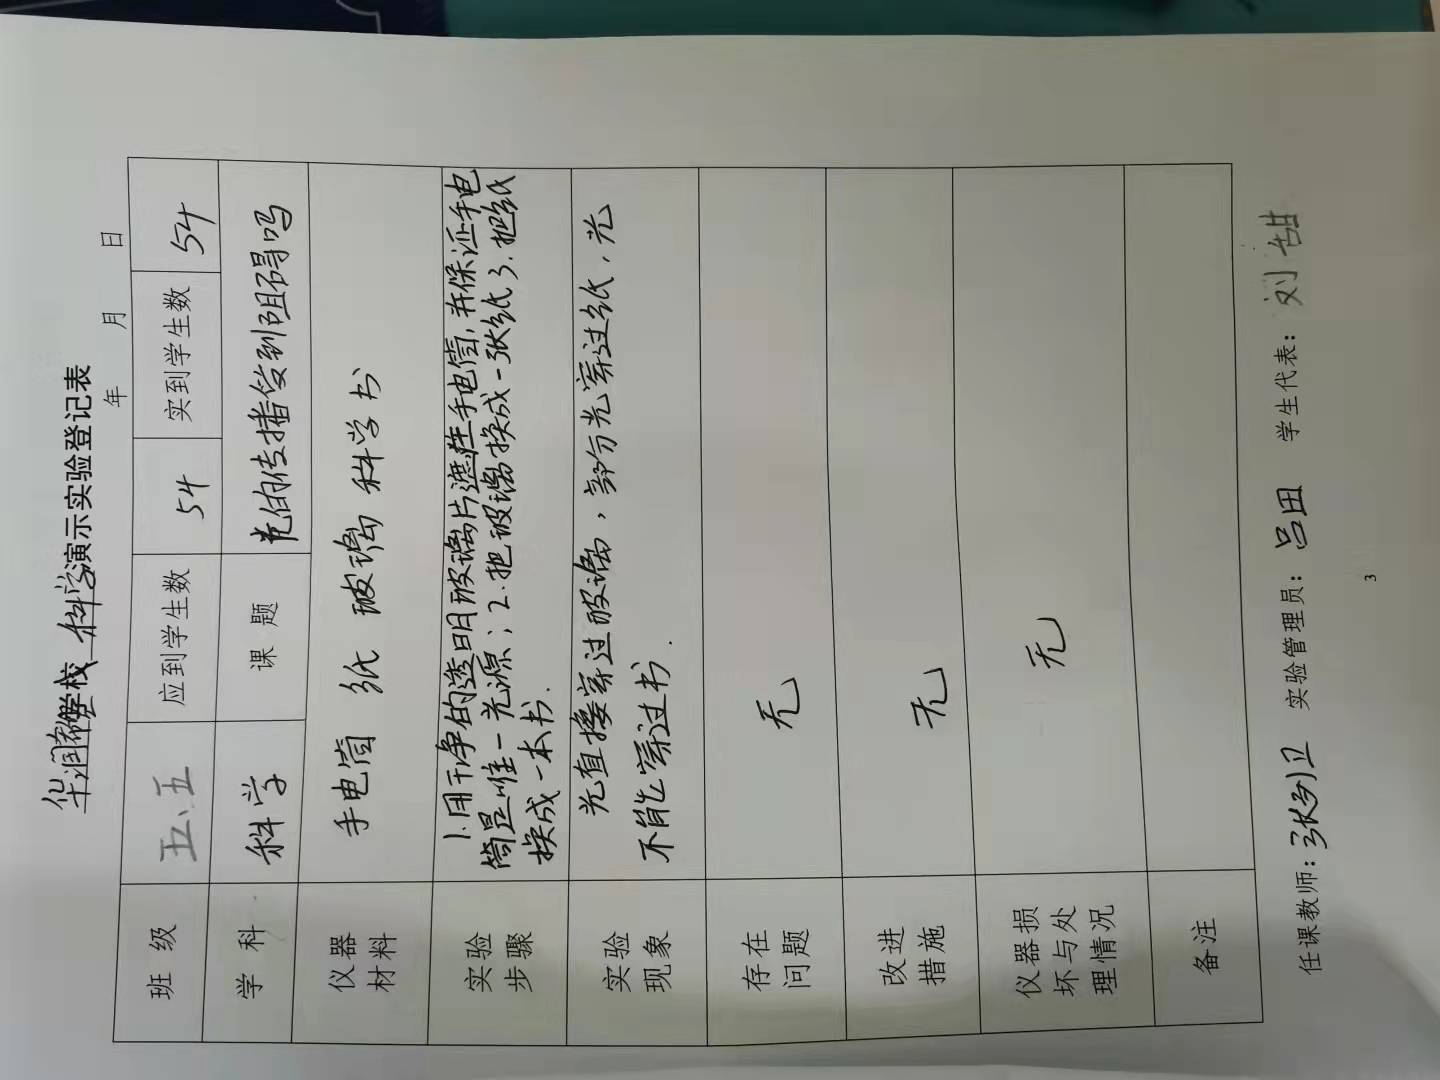 华润学校 科学演示实验登记表
年 月 日
班 级 五、五 应到学生数 54 实到学生数 54
学 科 科学 课 题 光的传播会到阻碍吗
仪器 材料 手电筒 纸 玻璃 科学书
实验 步骤
1.用干净的透明玻璃片遮住手电筒,并保证手电
筒是唯一光源;2.把玻璃换成一张纸3.把纸
换成一本书.
实验 现象
光直接穿过玻璃,部分光穿过纸,光
不能穿过书.
存在 问题 无
改进 措施 无
仪器损 坏与处 理情况 无
备注
任课教师: 实验管理员:吕田 学生代表:刘甜
3